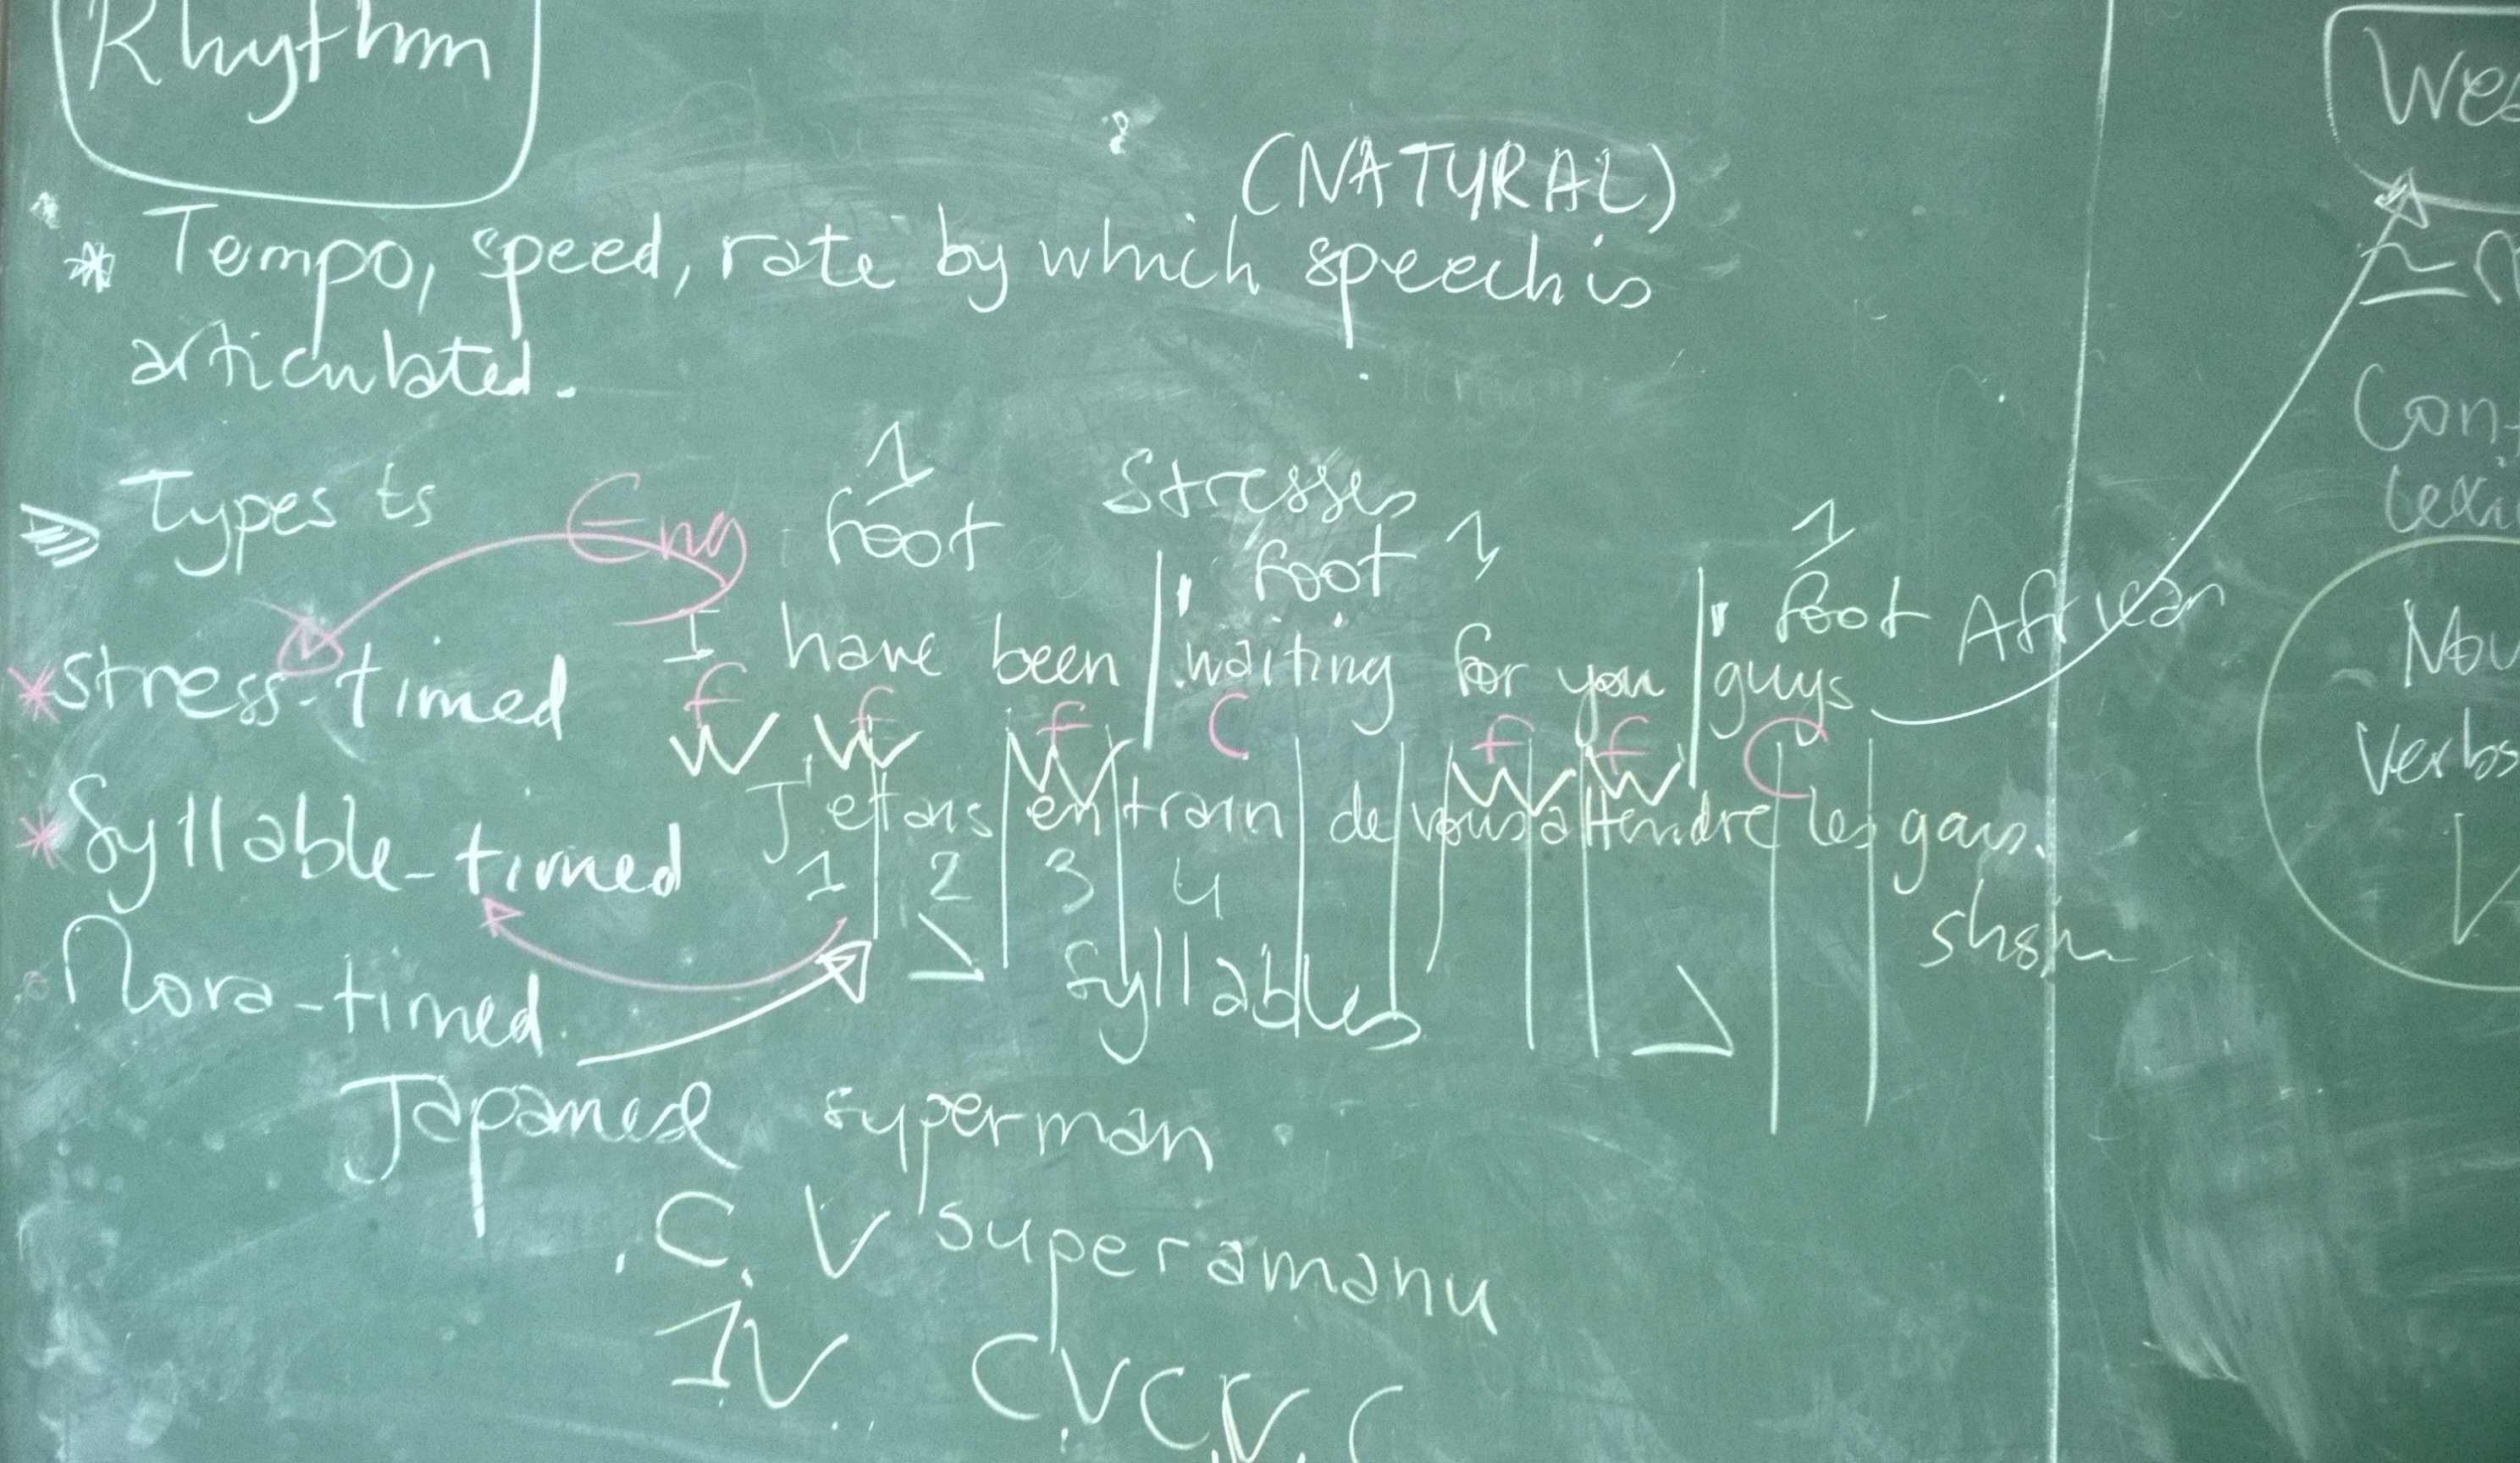 Rhythm
(NATURAL)
* Tempo, speed, rate by which speech is
articulated.
Types ts
Eng
1 Stresses
foot foot 1 1
foot African
* Stress-timed I have been | 'waiting for you | 'guys
f f f C f f C
W W W W W
* Syllable-timed J'etais en train de vous attendre les gars.
1 2 3 4
Syllables
Mora-timed.
Japanese superman
C V superamanu
1V CVCVC
Con-
lexi
Nou
Verbs